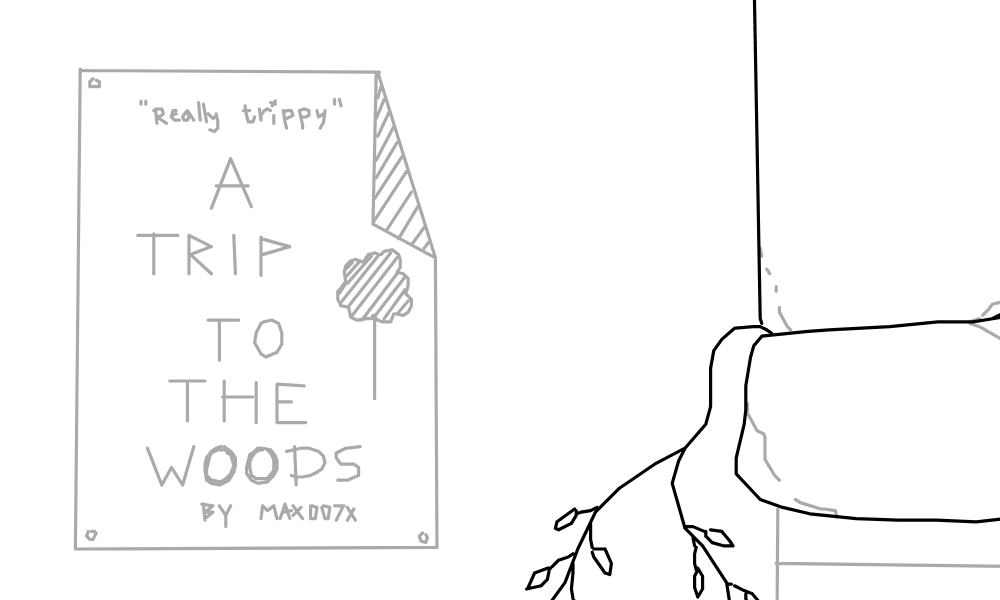 "Really trippy"
A
TRIP
TO
THE
WOODS
BY MAX007X